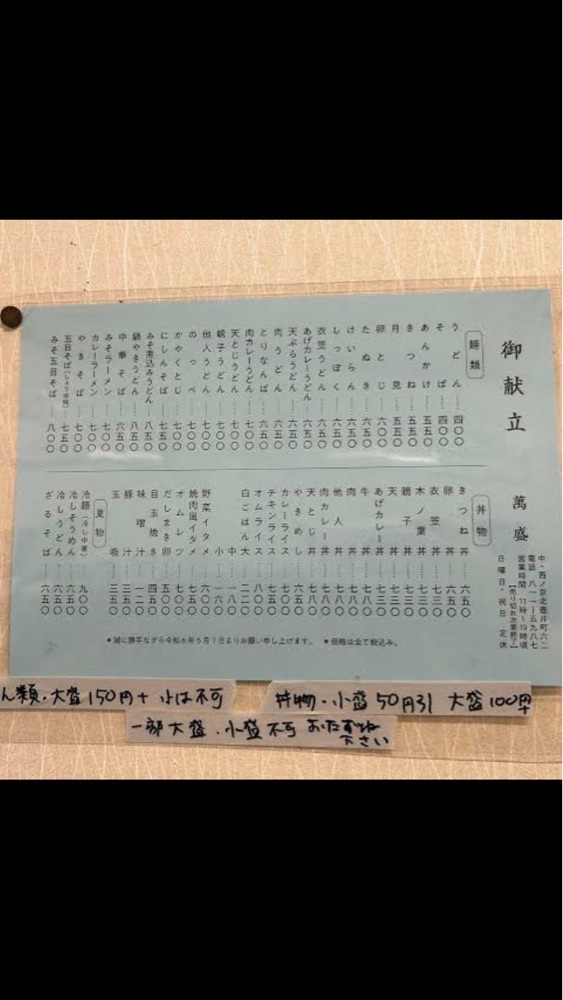 御献立
萬盛
中・西ノ京北壺井町六二
電話 八一一-五九八七
営業時間 11時~19時頃
【売り切れ次第終了】
日曜日・祝日 定休
麺類
うどん……四〇〇
そば……四〇〇
あんかけ……五五〇
きつね……五五〇
月見……五五〇
卵とじ……六〇〇
たぬき……六五〇
けいらん……六五〇
しっぽく……六五〇
衣笠うどん……六五〇
あげカレーうどん
天ぷらうどん
肉うどん……六五〇
とりなんば……六五〇
肉カレーうどん……七〇〇
天とじうどん……七〇〇
親子うどん……七〇〇
他人うどん……七〇〇
のっぺ……七〇〇
かやくとじ……七〇〇
にしんそば……七〇〇
みそ煮込みうどん……八五〇
鍋やきうどん……八五〇
中華そば……六五〇
みそラーメン
カレーラーメン……七〇〇
やきそば……七〇〇
五目そば……七五〇
みそ五目そば……八〇〇
丼物
きつね丼……六五〇
卵丼……六五〇
衣笠丼
木ノ葉丼……七三〇
親子丼……七三〇
天丼……七三〇
あげカレー丼
牛丼……七八〇
肉丼……七八〇
他人丼……七八〇
肉カレー丼……七八〇
天とじ丼……七八〇
やきめし……六五〇
カレーライス……七五〇
チキンライス……七五〇
オムライス……八〇〇
白ごはん 大……二二〇
中……一八〇
小……一六〇
野菜イタメ……六〇〇
焼肉風イタメ
オムレツ……七〇〇
だしまき卵……五〇〇
目玉焼き……四五〇
味噌汁……一二〇
豚汁……三五〇
玉吸……三五〇
夏物
冷麺(冷し中華)……九〇〇
冷しそうめん……六五〇
冷しうどん……六五〇
ざるそば……六五〇
●誠に勝手ながら令和6年5月7日よりお願い申し上げます。 ●価格は全て税込み。
ん類・大盛150円+ 小は不可
丼物・小盛50円引 大盛100円+
一部大盛・小盛不可 おたずね下さい